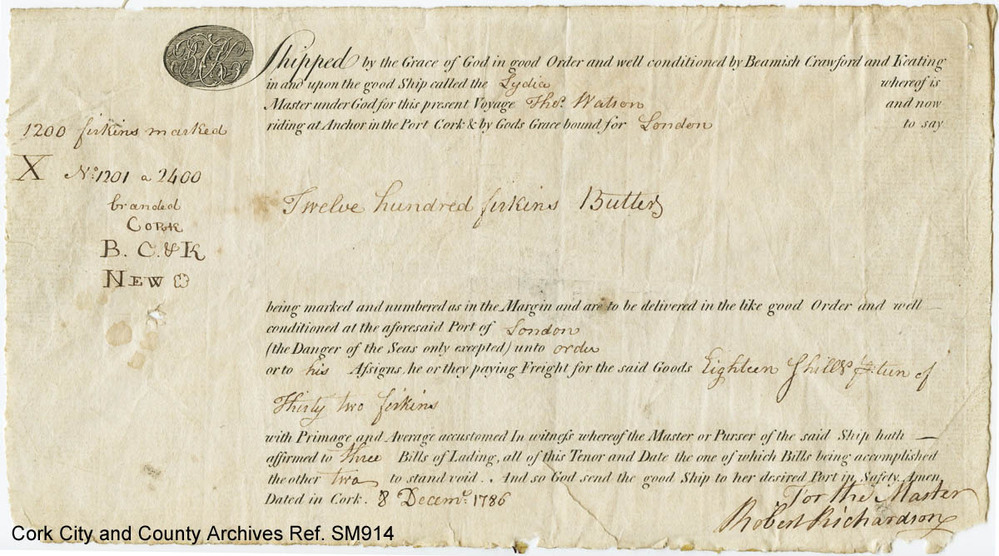 BCK
Shipped by the Grace of God in good Order and well conditioned by Beamish Crawford and Keating
in and upon the good Ship called the Lydia whereof is
Master under God for this present Voyage Thos. Watson and now
riding at Anchor in the Port Cork & by Gods Grace bound for London to say
1200 firkins marked
X No. 1201 a 2400
branded
CORK
B. C. & K
NEW
Twelve hundred firkins Butter
being marked and numbered as in the Margin and are to be delivered in the like good Order and well
conditioned at the aforesaid Port of London
(the Danger of the Seas only excepted) unto order
or to his Assigns, he or they paying Freight for the said Goods Eighteen Shills pr. tun of
Thirty two firkins
with Primage and Average accustomed In witness whereof the Master or Purser of the said Ship hath
affirmed to three Bills of Lading, all of this Tenor and Date the one of which Bills being accomplished
the other two to stand void . And so God send the good Ship to her desired Port in Safety. Amen
Dated in Cork. 8 Decemr. 1786
For the Master
Robert Richardson
Cork City and County Archives Ref. SM914